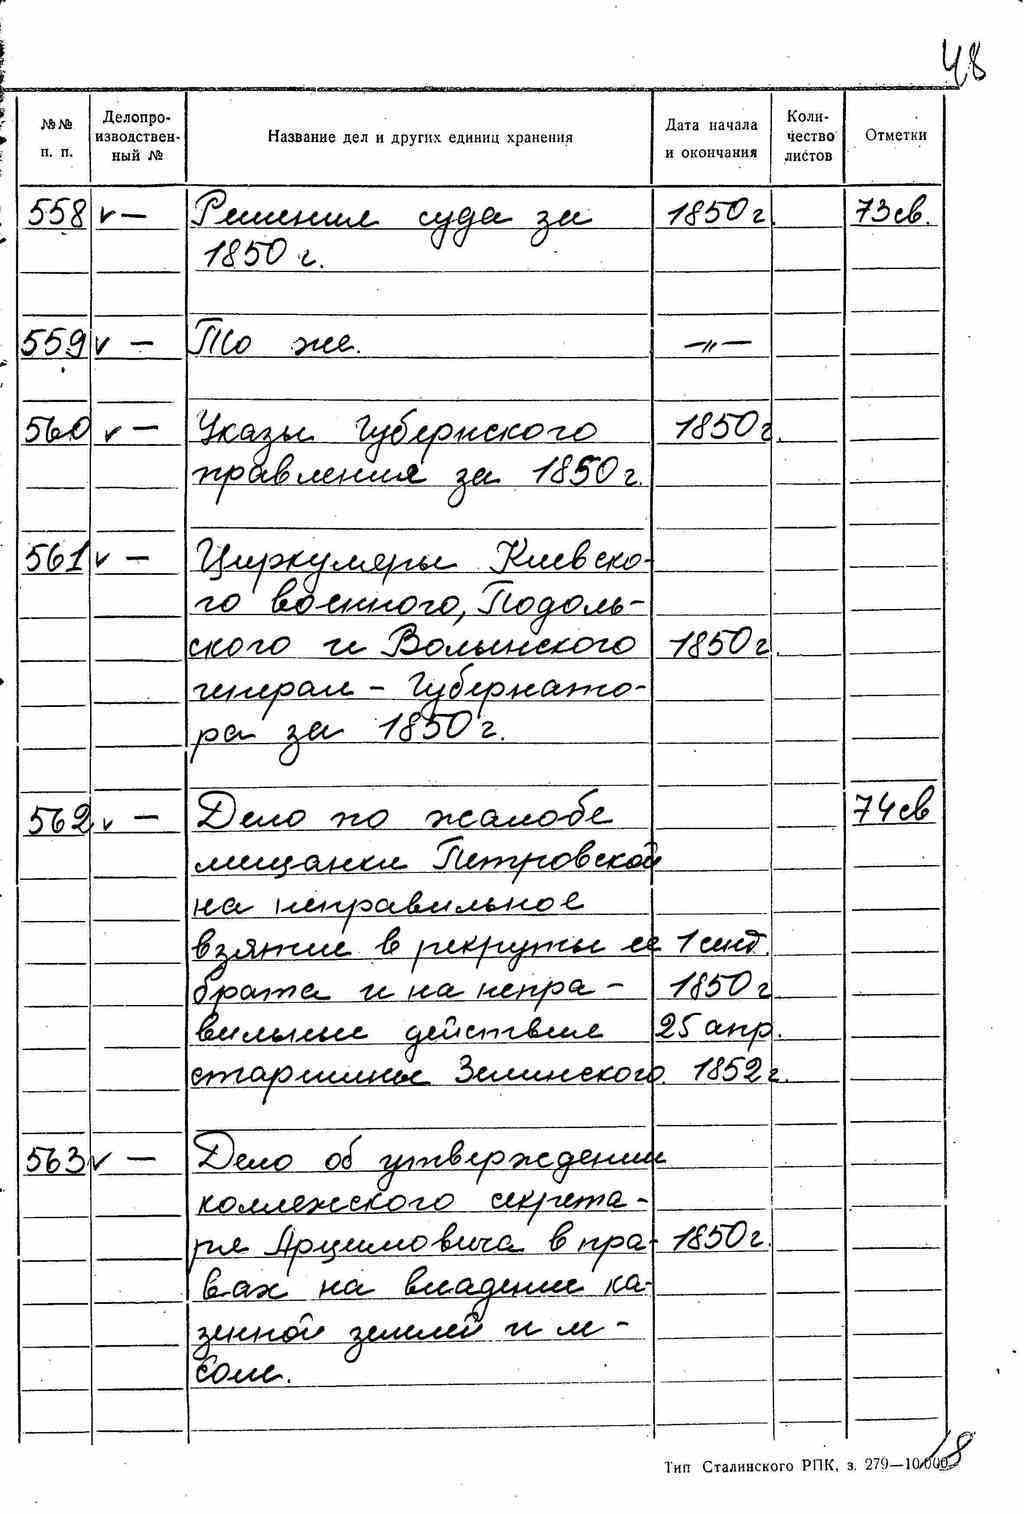 48
№№ п. п.
Делопроизводствен-ный №
Название дел и других единиц хранения
Дата начала и окончания
Коли-чество листов
Отметки
558 ✓ — Решения суда за 1850 г. 73 св.
1850 г.
559 ✓ — То же. —〃—
560 ✓ — Указы Губернского 1850 г.
правления за 1850 г.
561 ✓ — Циркуляры Киевско-
го военного, Подоль-
ского и Волынского 1850 г.
генерал - Губернато-
ра за 1850 г.
562 ✓ — Дело по жалобе 74 св
мещанки Петровской
на неправильное
взятие в рекруты ее 1 сент.
брата и на непра- 1850 г
вильные действие 25 апр.
старшины Зелинского. 1852 г.
563 ✓ — Дело об утверждении
коллежского секрета-
ря Арцимовича в пра- 1850 г.
вах на владение ка-
зенной землей и ле-
сом.
Тип Сталинского РПК, з. 279—10.000
18